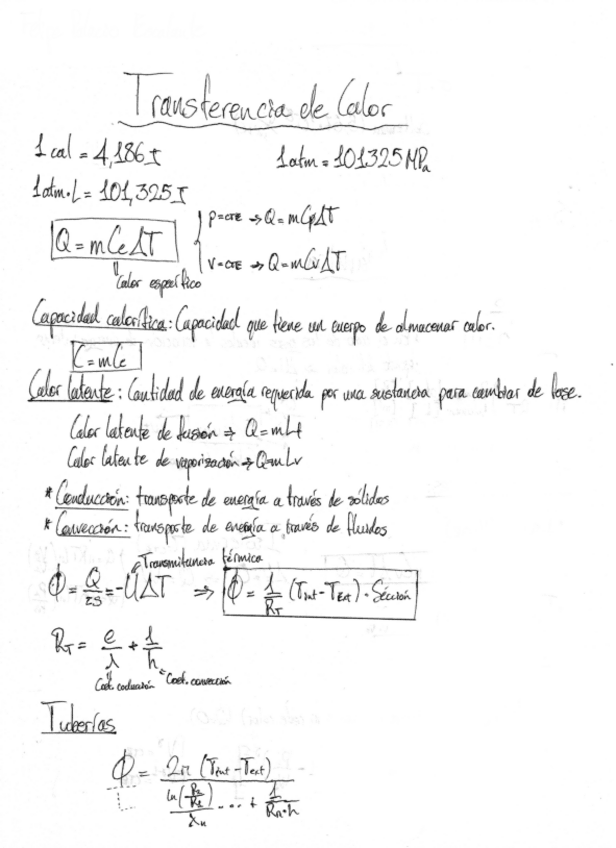 Transferencia de Calor
1 cal = 4,186 J    1 atm = 101325 MPa
1 atm·L = 101,325 J
Q = m Ce ΔT { P=CTE → Q = m Cp ΔT
V=CTE → Q = m Cv ΔT
Calor específico
Capacidad calorífica: Capacidad que tiene un cuerpo de almacenar calor.
C = m Ce
Calor latente: Cantidad de energía requerida por una sustancia para cambiar de fase.
Calor latente de fusión → Q = m Lf
Calor latente de vaporización → Q = m Lv
* Conducción: transporte de energía a través de sólidos
* Convección: transporte de energía a través de fluidos
Transmitancia térmica
ϕ = Q/ = -U ΔT ⇒ ϕ = 1/RT (Tint - Text) · Sección
RT = e/λ + 1/h
Coef. conducción Coef. convección
Tuberías
ϕ = 2π (Tint - Text)
ln( )/λn ... + 1/Rn·h